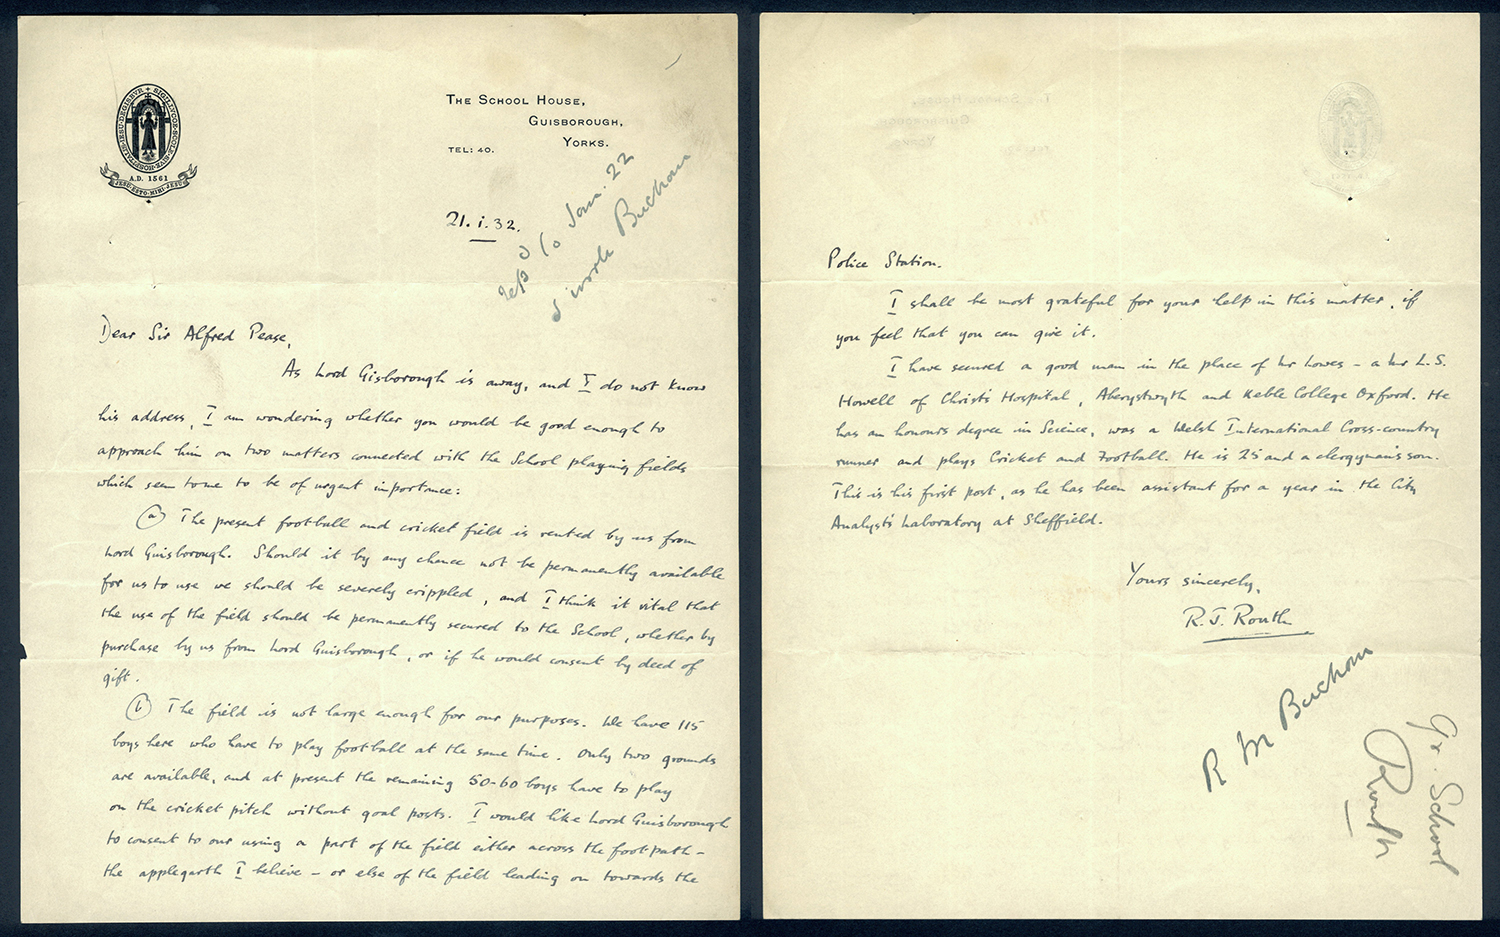 SIGILLV
A.D. 1561
JESU·ESTO·MIHI·JESU
THE SCHOOL HOUSE,
GUISBOROUGH,
YORKS.
TEL: 40.
21. i. 32.
Jan. 22
Buchan
Dear Sir Alfred Pease,
As Lord Gisborough is away, and I do not know
his address, I am wondering whether you would be good enough to
approach him on two matters connected with the School playing fields
which seem to me to be of urgent importance:
(a) The present football and cricket field is rented by us from
Lord Guisborough. Should it by any chance not be permanently available
for us to use we should be severely crippled, and I think it vital that
the use of the field should be permanently secured to the School, whether by
purchase by us from Lord Guisborough, or if he would consent by deed of
gift.
(b) The field is not large enough for our purposes. We have 115
boys here who have to play football at the same time. Only two grounds
are available, and at present the remaining 50-60 boys have to play
on the cricket pitch without goal posts. I would like Lord Guisborough
to consent to our using a part of the field either across the foot-path –
the applegarth I believe – or else of the field leading on towards the
Police Station.
I shall be most grateful for your help in this matter, if
you feel that you can give it.
I have secured a good man in the place of Mr Lowes – a Mr L.S.
Howell of Christ's Hospital, Aberystwyth and Keble College Oxford. He
has an honours degree in Science, was a Welsh International Cross-country
runner and plays Cricket and Football. He is 25 and a clergyman's son.
This is his first post, as he has been assistant for a year in the City
Analyst's Laboratory at Sheffield.
Yours sincerely,
R.J. Routh
R M Buchan
Gr. School
Routh